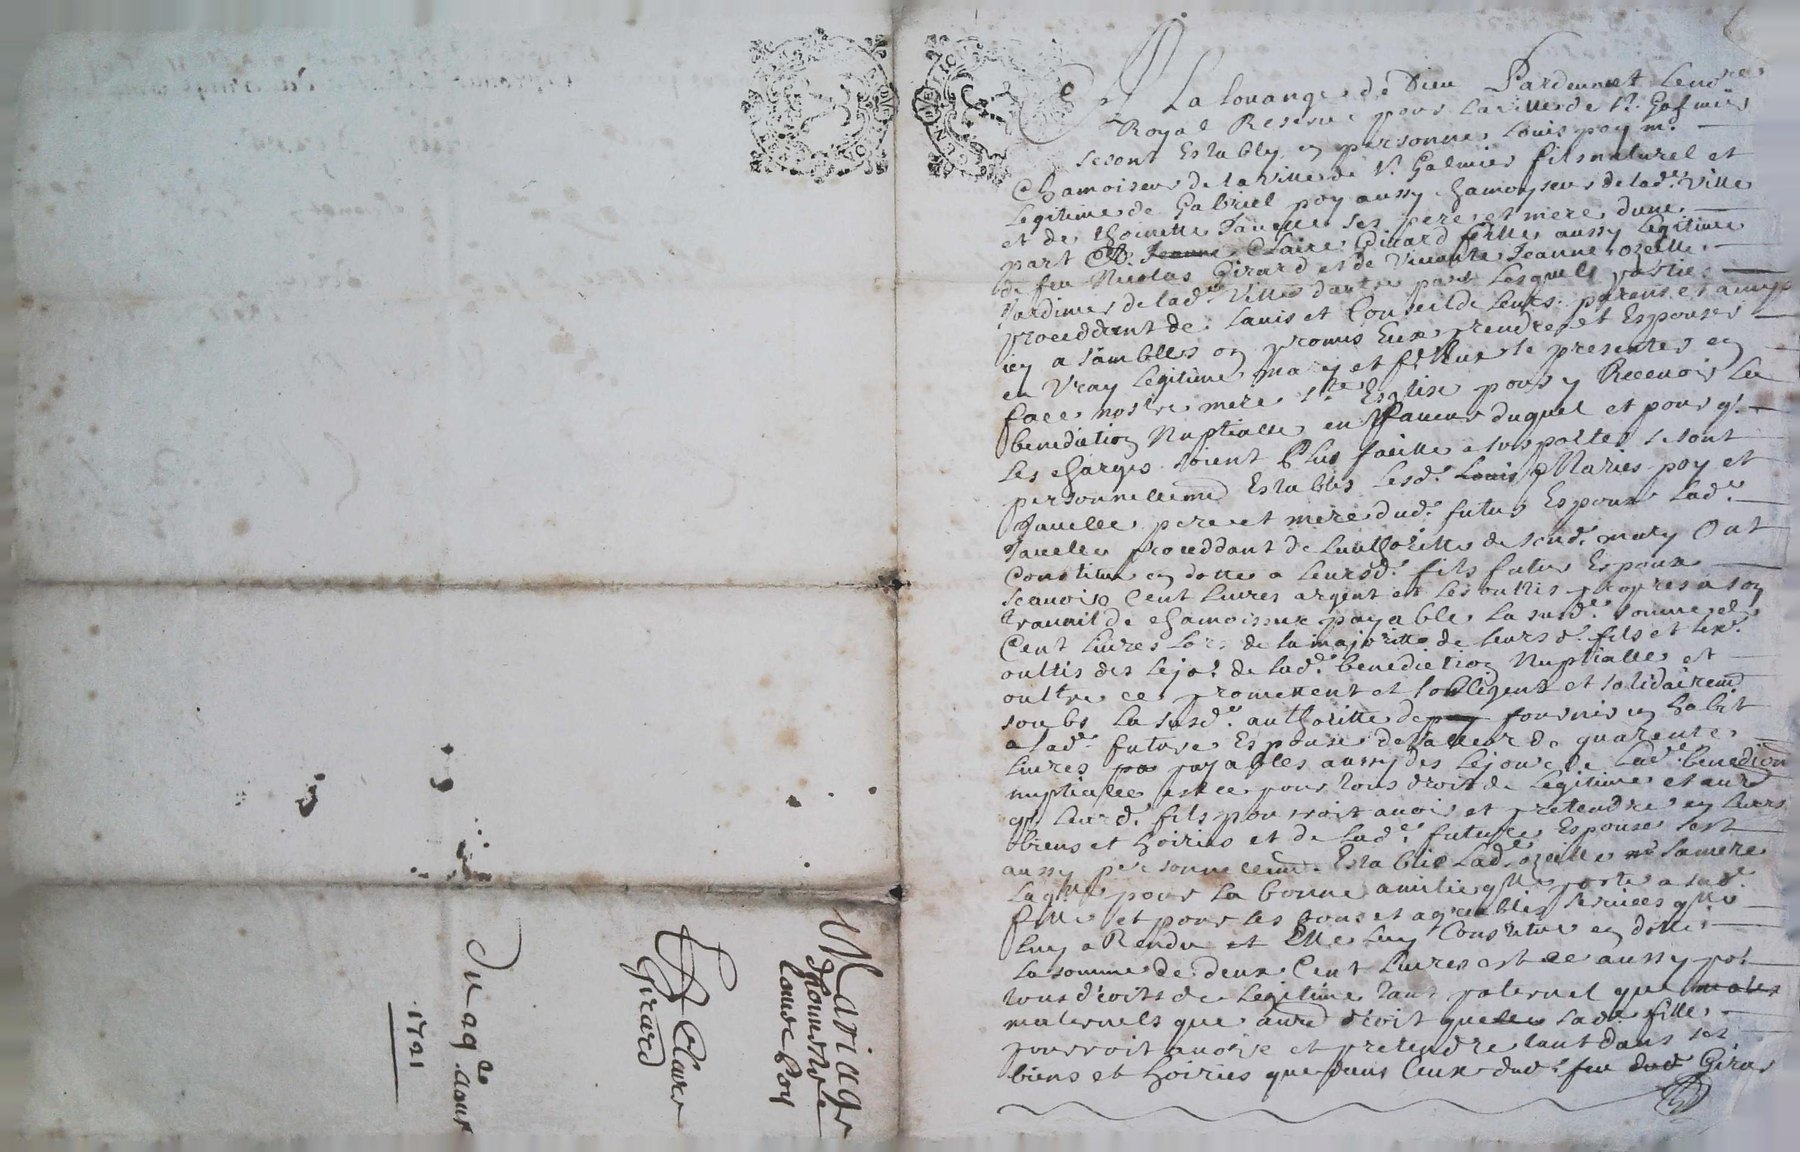 A La louange de Dieu Pardeuant Le no.re
Royal Reserué pour La ville de S.t Galmier
se sont Estably en personne Louis poy m.e
Chamoiseur de la ville de S.t Galmier fils naturel et
Legitime de Gabriel poy aussy chamoyseur de lad.e ville
et de thoinette Jauelle ses pere et mere dune
part Et Jeanne Claire Girard fille aussy Legitime
de feu Nicolas Girard et de viuante Jeanne ozelle
Jardinier de lad.e ville dautre part Lesquels parties
proceddant de Lauis et Conseil de Leurs parens et amys
icy assambllés on promis Eux prendre et Espouser
en vray Legitime mary et femme se presenter en
face nostre mere s.te Esglise pour y Receuoir La
benediction Nuptialle en faueur duquel et pour q.
Les charges soient plus facille a suporter se sont
personnellem.t Establis Lesd. Louis Maries poy et
Jauelle pere et mere dud. futur Espoux Lad.e
Jauelle proceddant de Lauthoritte de sond. mary Ont
Constitue en dotte a Leursd. fils futur Espoux
scauoir Cent Liures argent et Les outtis propres a son
trauail de chamoiseur payable La susd.e somme de
Cent Liures Lors de la majoritte de Leursd. fils et les.
outtis des Lejo. de lad.e benediction Nuptialle et
outtre ce promettent et sobligent et solidairem.t
soubs La susd.e authoritte de pay fournir un habit
a Lad.e future Espouse de valleur de quarente
Liures pa payables aussy des Lejour de Lad.e benediōn
nuptialle est ce pour tous droit de Legitime et autre
q. Leurd. fils pourroit auoir et pretendre en Leurs
biens et hoiries et de Lad.e future Espouse sest
aussy personnellem.t Establie Lad.e ozelle sa mere
Laq.lle pour La bonne amitie q.lle porte a sad.e
fille et pour les bons et agreables seruices q.lle
Luy a Rendu et Elle Luy Constitue en dotte
La somme de deux Cent Liures est ce aussy po.r
tous droits de Legitime tant paternel que mater
maternels que autre droit que sad.e fille
pourroit auoir et pretendre tant dans ses
biens et hoiries que dans Ceux dud. feu dud. Girar
Mariage
Louis Poy
Et Claire
Girard
Du aout
1721